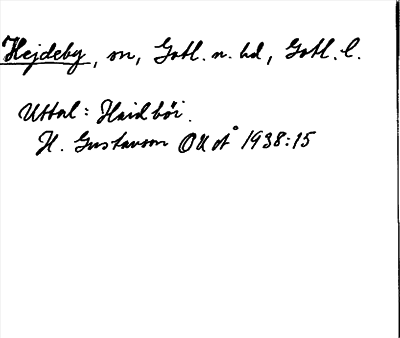 Hejdeby, sn, Gotl. n. hd, Gotl. l.
Uttal: Haidböi.
H. Gustavson OUÅ 1938:15